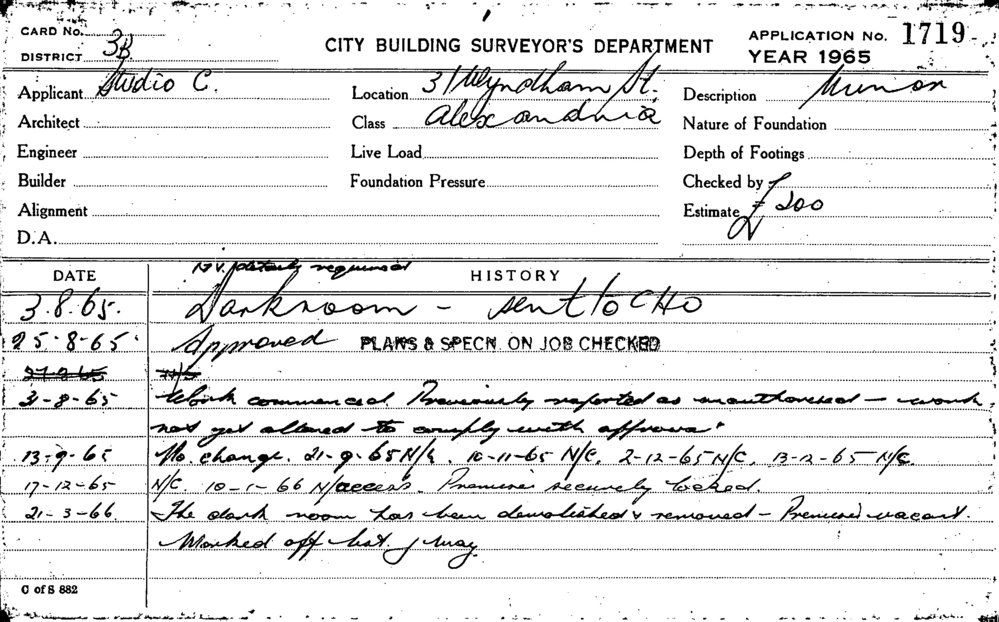 CARD No.
DISTRICT 3B
CITY BUILDING SURVEYOR'S DEPARTMENT
APPLICATION No. 1719
YEAR 1965
Applicant Studio C.
Location 31 Wyndham St.
Description Minor
Architect
Class Alexandria
Nature of Foundation
Engineer
Live Load
Depth of Footings
Builder
Foundation Pressure
Checked by
Alignment
Estimate £ 200
D.A.
required
DATE
HISTORY
3.8.65. Darkroom - sent to CHO
25-8-65 Approved PLANS & SPECN. ON JOB CHECKED
27-8-65 N/S
31-8-65 Work commenced. Previously reported as unauthorised - work
not yet altered to comply with approval
13-9-65 No change. 21-9-65 N/C. 10-11-65 N/C. 2-12-65 N/C. 13-12-65 N/C.
17-12-65 N/C. 10-1-66 N/access. Premises securely locked.
21-3-66. The dark room has been demolished & removed - Premises vacant.
Marked off list.
C of S 882